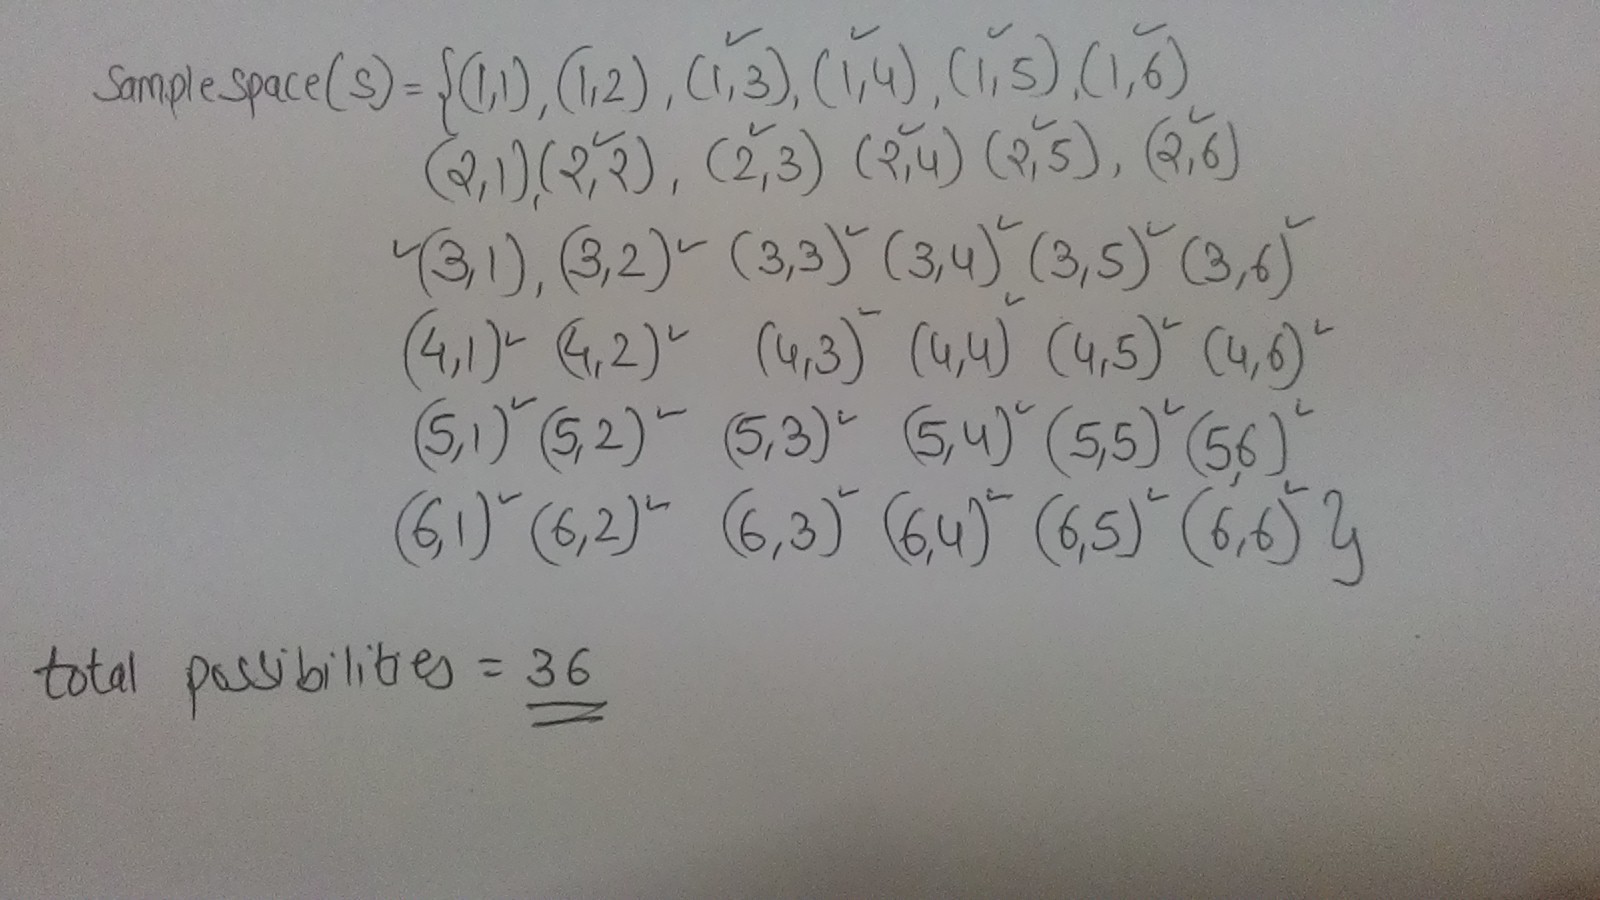 Sample space (S) = {(1,1), (1,2), (1,3)✓, (1,4)✓, (1,5)✓, (1,6)✓
(2,1), (2,2)✓, (2,3)✓ (2,4)✓ (2,5)✓, (2,6)✓
✓(3,1), (3,2)✓ (3,3)✓ (3,4)✓ (3,5)✓ (3,6)✓
(4,1)✓ (4,2)✓ (4,3)✓ (4,4)✓ (4,5)✓ (4,6)✓
(5,1)✓ (5,2)✓ (5,3)✓ (5,4)✓ (5,5)✓ (5,6)✓
(6,1)✓ (6,2)✓ (6,3)✓ (6,4)✓ (6,5)✓ (6,6)✓ }
total possibilities = 36